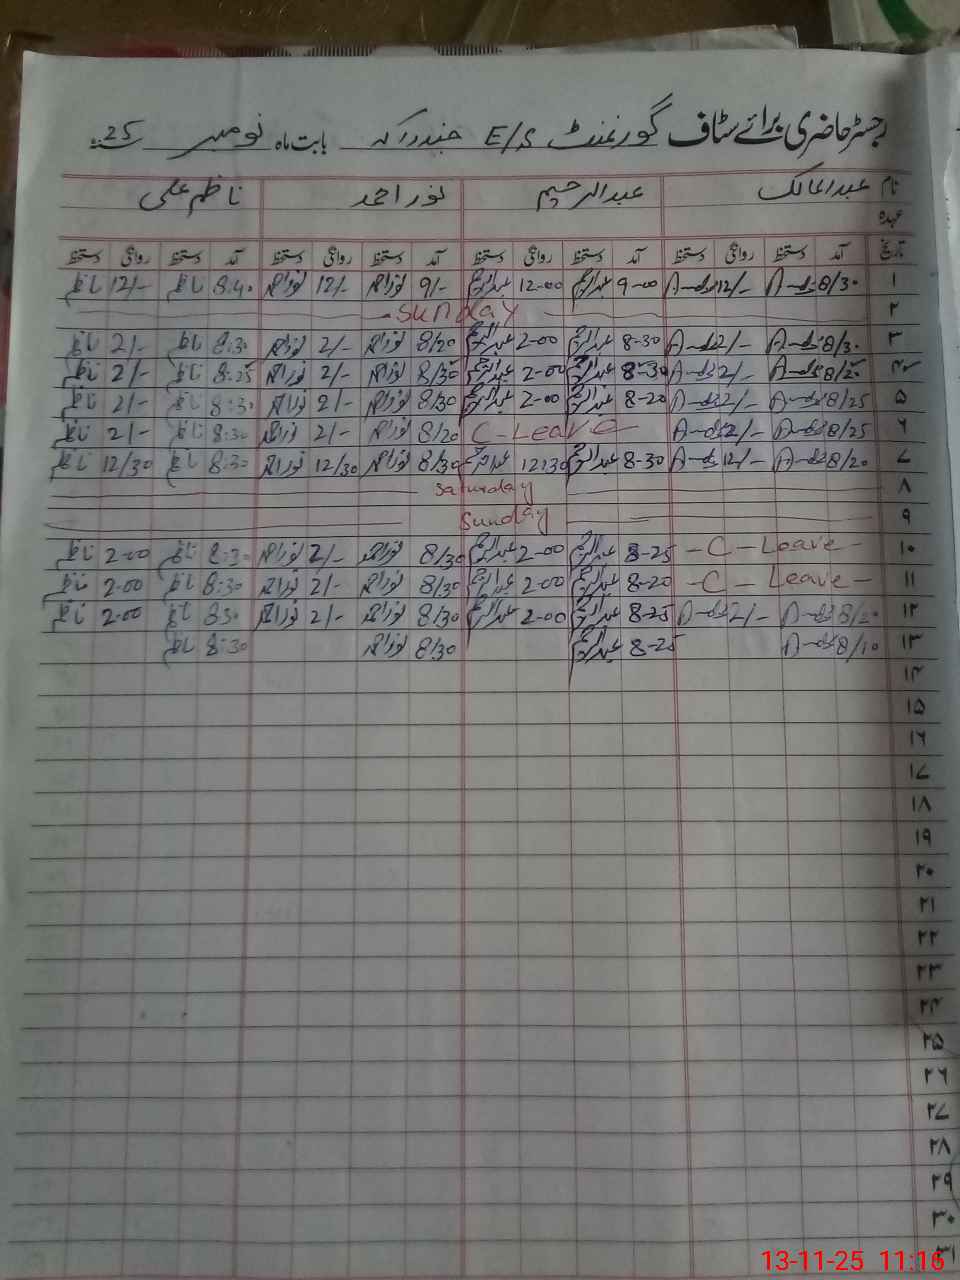 رجسٹر حاضری برائے سٹاف گورنمنٹ E/S بابت ماہ نومبر 25
نام عبدالمالک عبدالرحیم نور احمد ناظم علی
عہدہ
تاریخ آمد دستخط روانگی دستخط آمد دستخط روانگی دستخط آمد دستخط روانگی دستخط آمد دستخط روانگی دستخط
۱ 8/30 12/- 9-00 عبدالرحیم 12-00 عبدالرحیم 9/- نور احمد 12/- نور احمد 8:40 ناظم 12/- ناظم
۲ Sunday
۳ 8/30 2/- 8-30 عبدالرحیم 2-00 عبدالرحیم 8/20 نور احمد 2/- نور احمد 8:30 ناظم 2/- ناظم
۴ 8/25 2/- 8-30 عبدالرحیم 2-00 عبدالرحیم 8/30 نور احمد 2/- نور احمد 8:25 ناظم 2/- ناظم
۵ 8/25 2/- 8-20 عبدالرحیم 2-00 عبدالرحیم 8/30 نور احمد 2/- نور احمد 8:30 ناظم 2/- ناظم
۶ 8/25 2/- C-Leave 8/20 نور احمد 2/- نور احمد 8:30 ناظم 2/- ناظم
۷ 8/20 12/- 8-30 عبدالرحیم 12:30 عبدالرحیم 8/30 نور احمد 12/30 نور احمد 8:30 ناظم 12/30 ناظم
۸ Saturday
۹ Sunday
۱۰ -C-Leave- 8-25 عبدالرحیم 2-00 عبدالرحیم 8/30 نور احمد 2/- نور احمد 8:30 ناظم 2-00 ناظم
۱۱ -C-Leave- 8-20 عبدالرحیم 2-00 عبدالرحیم 8/30 نور احمد 2/- نور احمد 8:30 ناظم 2-00 ناظم
۱۲ 8/20 2/- 8-25 عبدالرحیم 2-00 عبدالرحیم 8/30 نور احمد 2/- نور احمد 8:30 ناظم 2-00 ناظم
۱۳ 8/10 8-25 عبدالرحیم 8/30 نور احمد 8:30 ناظم
۱۴
۱۵
۱۶
۱۷
۱۸
۱۹
۲۰
۲۱
۲۲
۲۳
۲۴
۲۵
۲۶
۲۷
۲۸
۲۹
۳۰
۳۱
13-11-25 11:16